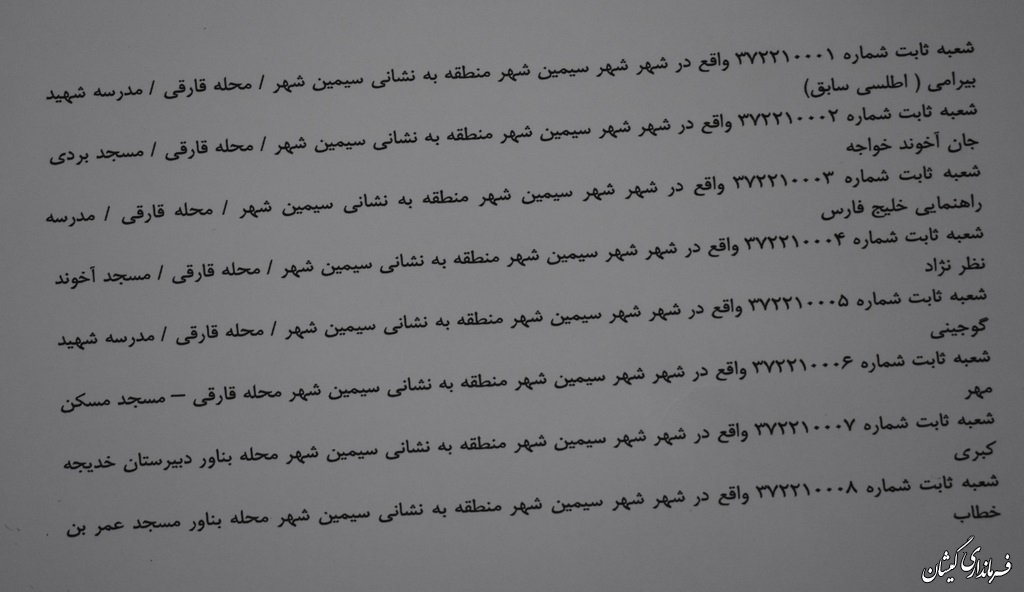 شعبه ثابت شماره ۳۷۲۲۱۰۰۰۱ واقع در شهر شهر سیمین شهر منطقه به نشانی سیمین شهر / محله قارقی / مدرسه شهید
بیرامی ( اطلسی سابق)
شعبه ثابت شماره ۳۷۲۲۱۰۰۰۲ واقع در شهر شهر سیمین شهر منطقه به نشانی سیمین شهر / محله قارقی / مسجد بردی
جان آخوند خواجه
شعبه ثابت شماره ۳۷۲۲۱۰۰۰۳ واقع در شهر شهر سیمین شهر منطقه به نشانی سیمین شهر / محله قارقی / مدرسه
راهنمایی خلیج فارس
شعبه ثابت شماره ۳۷۲۲۱۰۰۰۴ واقع در شهر شهر سیمین شهر منطقه به نشانی سیمین شهر / محله قارقی / مسجد آخوند
نظر نژاد
شعبه ثابت شماره ۳۷۲۲۱۰۰۰۵ واقع در شهر شهر سیمین شهر منطقه به نشانی سیمین شهر / محله قارقی / مدرسه شهید
گوجینی
شعبه ثابت شماره ۳۷۲۲۱۰۰۰۶ واقع در شهر شهر سیمین شهر منطقه به نشانی سیمین شهر محله قارقی – مسجد مسکن
مهر
شعبه ثابت شماره ۳۷۲۲۱۰۰۰۷ واقع در شهر شهر سیمین شهر منطقه به نشانی سیمین شهر محله بناور دبیرستان خدیجه
کبری
شعبه ثابت شماره ۳۷۲۲۱۰۰۰۸ واقع در شهر شهر سیمین شهر منطقه به نشانی سیمین شهر محله بناور مسجد عمر بن
خطاب
فرمانداری گمیشان